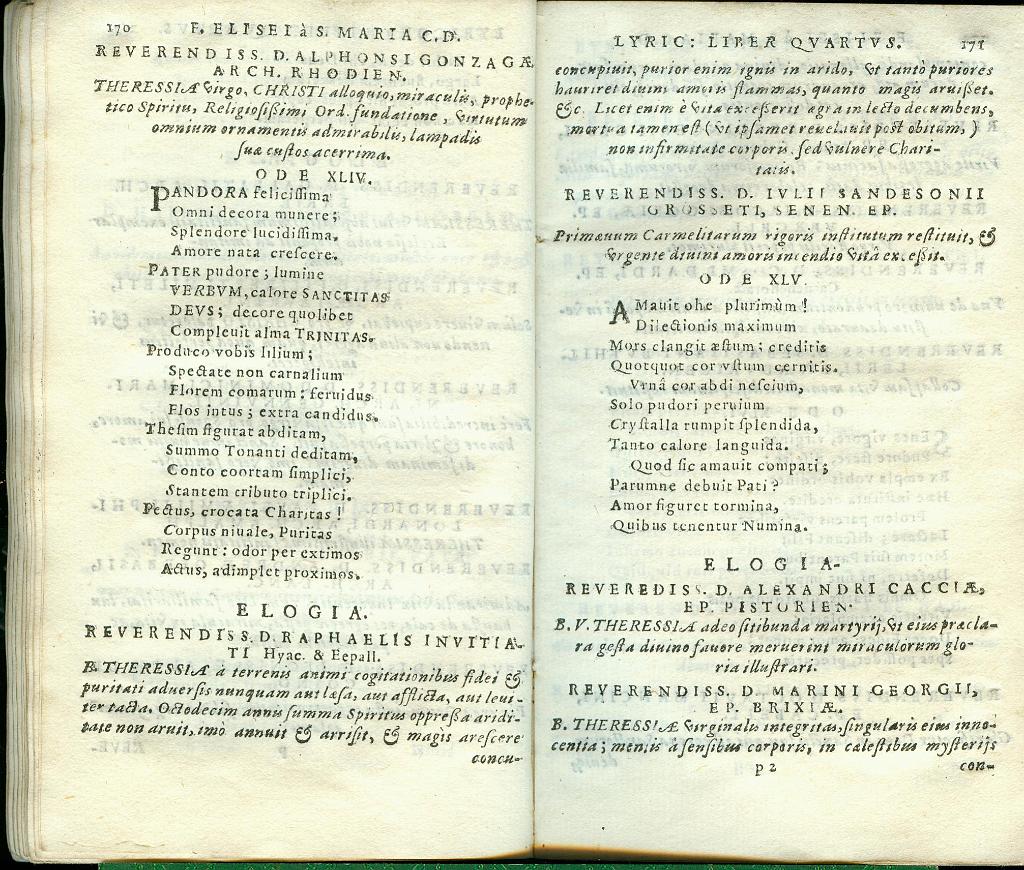 170 F. ELISEI à S. MARIA C.D.
REVERENDISS. D. ALPHONSI GONZAGÆ
ARCH. RHODIEN.
THERESSIA Virgo, CHRISTI alloquio, miraculis, prophe-
tico Spiritu, Religiosissimi Ord. fundatione, Virtutum
omnium ornamentis admirabilis, lampadis
suæ custos acerrima.
ODE XLIV.
PANDORA felicissima
Omni decora munere;
Splendore lucidissima,
Amore nata crescere.
PATER pudore; lumine
VERBVM, calore SANCTITAS
DEVS; decore quolibet
Compleuit alma TRINITAS.
Produco vobis lilium;
Spectate non carnalium
Florem comarum: feruidus
Flos intus; extra candidus,
Thesim figurat abditam,
Summo Tonanti deditam,
Conto coortam simplici,
Stantem cributo triplici.
Pectus, crocata Charitas!
Corpus niuale, Puritas
Regunt: odor per extimos
Actus, adimplet proximos.
ELOGIA.
REVERENDISS. D. RAPHAELIS INVITIA-
TI Hyac. & Eepall.
B. THERESSIA à terrenis animi cogitationibus fidei &
puritati aduersis nunquam aut læsa, aut afflicta, aut leui-
ter tacta. Octodecim annis summa Spiritus oppressa aridi-
tate non aruit, imo annuit & arrisit, & magis arescere
concu-
LYRIC: LIBER QVARTVS. 171
concupiuit, purior enim ignis in arido, Vt tantò puriores
hauriret diuini amoris flammas, quanto magis aruisset.
&c. Licet enim è Vita excesserit ægra in lecto decumbens,
mortua tamen est (Vt ipsamet reuelauit post obitum,)
non infirmitate corporis, sed Vulnere Chari-
tatis.
REVERENDISS. D. IVLII SANDESONII
GROSSETI, SENEN. EP.
Primæuum Carmelitarum rigoris institutum restituit, &
Vrgente diuini amoris incendio Vitâ excessit.
ODE XLV.
AMauit ohe plurimùm!
Dilectionis maximum
Mors clangit æstum; creditis
Quotquot cor vstum cernitis.
Vrnâ cor abdi nescium,
Solo pudori peruium
Crystalla rumpit splendida,
Tanto calore languida.
Quod sic amauit compati;
Parumne debuit Pati?
Amor figuret tormina,
Quibus tenentur Numina.
ELOGIA.
REVEREDISS. D. ALEXANDRI CACCIÆ,
EP. PISTORIEN.
B. V. THERESSIA adeo sitibunda martyrij, Vt eius præcla-
ra gesta diuino fauore meruerint miraculorum glo-
ria illustrari.
REVERENDISS. D. MARINI GEORGII,
EP. BRIXIÆ.
B. THERESSIÆ Virginalis integritas, singularis eius inno-
centia; mentis à sensibus corporis, in cælestibus mysterijs
p 2 con-